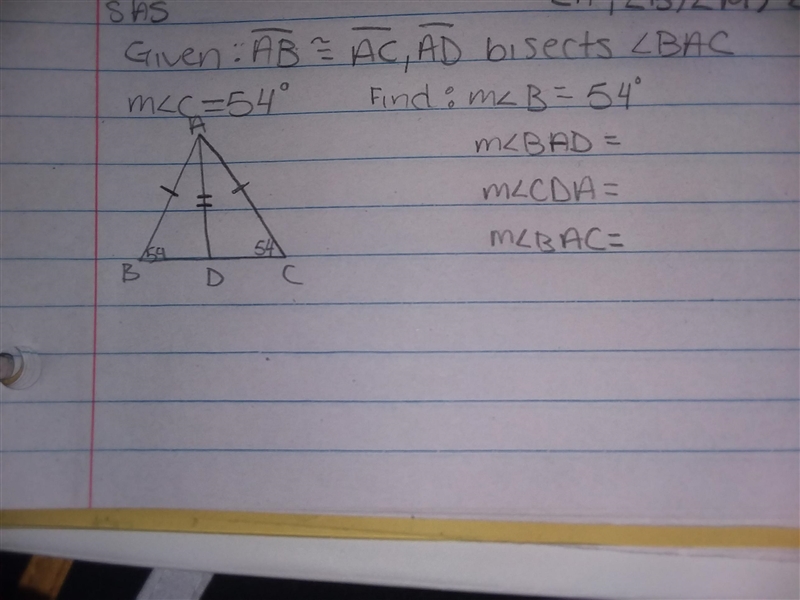 SAS
Given: AB ≅ AC, AD bisects ∠BAC
m∠C = 54° Find: m∠B = 54°
m∠BAD =
m∠CDA =
m∠BAC =
A
54 54
B D C